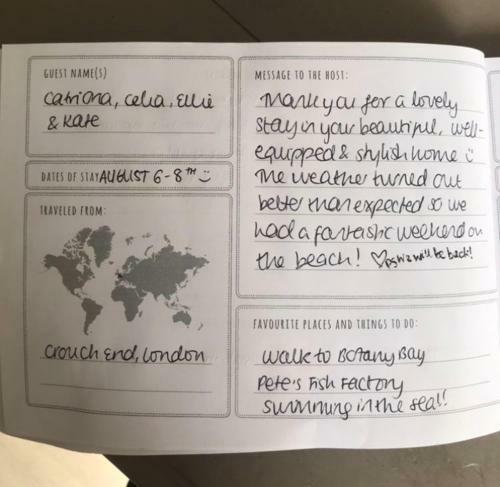 GUEST NAME(S)
Catriona, Celia, Ellie
& Kate
DATES OF STAY AUGUST 6-8TH ☺
TRAVELED FROM:
Crouch End, London
MESSAGE TO THE HOST:
Thank you for a lovely
stay in your beautiful, well-
equipped & stylish home ☺
The weather turned out
better than expected so we
had a fantastic weekend on
the beach! ♡ ps we will be back!
FAVOURITE PLACES AND THINGS TO DO:
Walk to Botany Bay
Pete's Fish Factory
Swimming in the sea!!